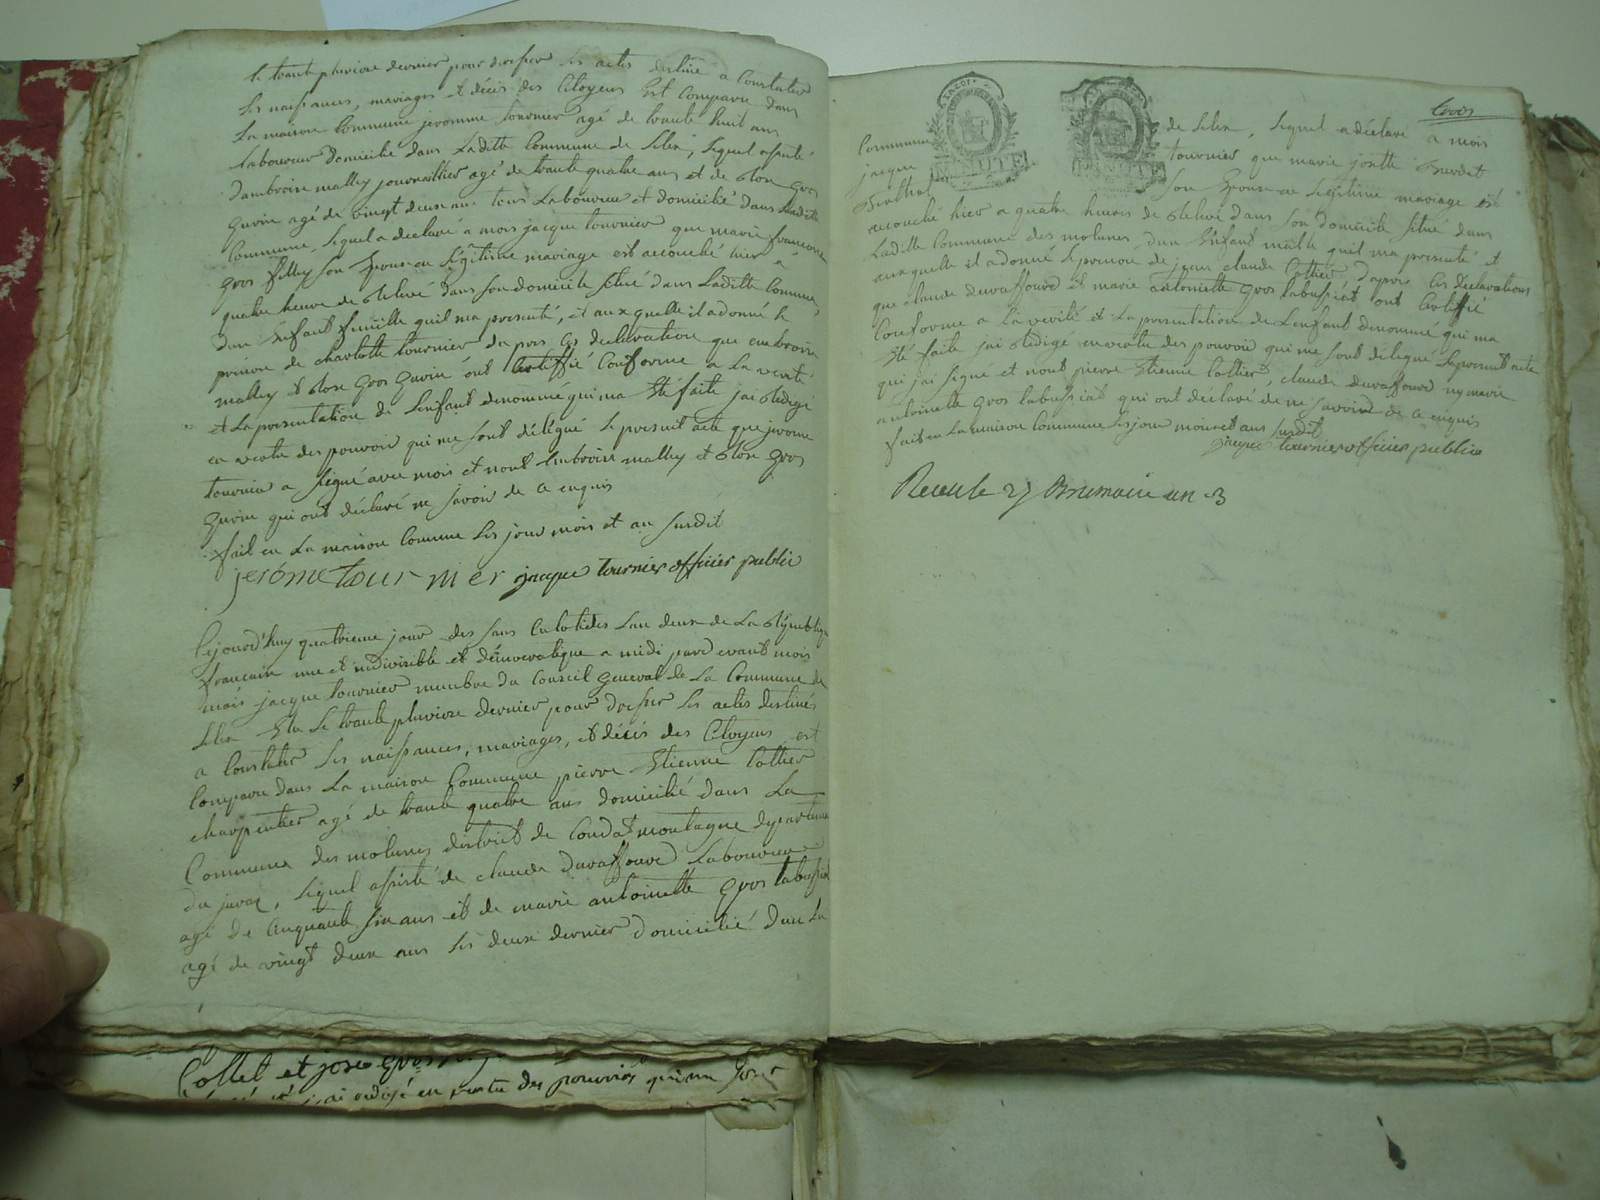 le trante pluviose dernier pour dresser les actes destiné a Constater
les naissances, mariages et décès des Citoyens Est Comparu dans
La maison Commune jeromme tournier agé de trante huit ans
laboureur domicilié dans Laditte Commune de Lelex, lequel assisté
dambroise malley journaillier agé de trante quatre ans et de Rose gros
gurin agé de vingt deux ans tous Laboureur et domicilié dans Laditte
Commune, lequel a declaré a mois jacque tournier que marie francoise
gros fillex son Epouse en légitime mariage est acouché hier a
quatre heure de Relevé dans son domicile situé dans Laditte Commune,
dun Enfant femelle quil ma presenté, et auxquelle il a donné le
prénon de charlotte tournier daprès les declaration que embroise
malley et Rose gros gurin ont Certiffié Conforme a La verité
et La presentation de Lenfant denommé qui ma Eté faite jai Redigé
en vertu des pouvoir qui me sont délégué le presenit acte que jerome
tournier a signé avec mois et nont Embroise malley et Rose gros
gurin qui ont déclaré ne savoir de ce enquis
fait en La maison Commune les jour mois et an susdit
jerôme tournier jacque tournier officier public
Cejourd'huy quatrieme jour des sans Culotides Lan deux de La République
francaise une et indivisible et démocratique a midi pard evant mois
mois jacque tournier membre du Conseil general de La Commune de
Lelex Elu le trante pluviose dernier pour dresser les actes destinés
a Constater les naissances, mariages, et décès des Citoyens est
Comparu dans La maison Commune pierre Etienne Cottier
charpentier agé de trante quatre ans domicilié dans La
Commune des molunes district de Condat montagne departeme
du jura, lequel assisté de claude duraffourd Laboureur
agé de Cinquante six ans et de marie antoinette gros labussiat
agé de vingt deux ans les deux dernier domicilié dans La
Collet et jose gros
jai rédigé en vertu des pouvoirs qui me sont
trois
Commune de Lelex, lequel a déclaré a mois
jacque tournier que marie josette Burdet
Benthod son Epouse en legitime mariage est
acouché hier a quatre heures de Relevé dans son domicile situé dans
Laditte Commune des molunes, dun Enfant malle quil ma presenté et
auxquelle il a donné le prenon de jean claude Cottier, daprès les déclarations
que claude duraffourd et marie antoinette gros labussiat ont Certiffié
Conforme a la vérité et La presentation de Lenfant denommé qui ma
Eté faite jai Rédigé en vertu des pouvoir qui me sont délegué le present acte
qui jai signé et nont pierre Etienne Cottier, claude duraffourd ny marie
antoinette gros labussiat qui ont déclaré de ne savoir de ce enquis
fait en La maison Commune les jour mois et ans susdit
jacque tournier officier public
Receu le 27 Brumaire an 3